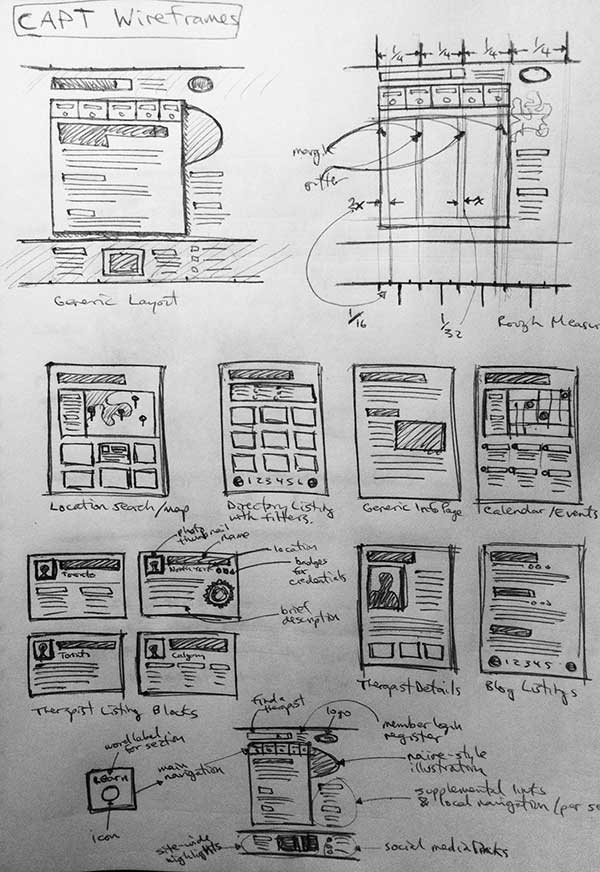 CAPT Wireframes
1/4 1/4 1/4 1/4
margin
gutter
2x x
Generic Layout
1/16
1/32
Rough Measur
Location search/map
Directory Listing
with filters.
Generic Info Page
Calendar/Events
photo
thumbnail
name
location
badges
for
credentials
brief
description
Toronto
North York
Toronto
Calgary
1 2 3 4 5 6
1 2 3 4 5
Therapist Listing Blocks
Therapist Details
Blog Listings
find a
therapist
logo
member login
register
word label
for section
LEARN
icon
main
navigation
naive-style
illustration
supplemental links
& local navigation/per se
site-wide
highlights
social media links